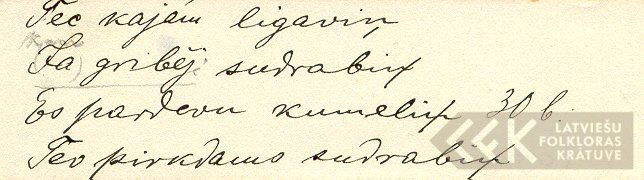 Tec kajām ligaviņ
Ja gribēj sudrabiņ
Es pardevu kumeliņ 30 b.
Tev pirkdams sudrabiņ
LATVIEŠU
FOLKLORAS
KRĀTUVE